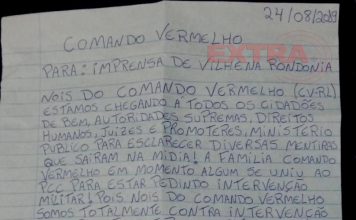 24/08/2019
COMANDO VERMELHO
EXTRA
PARA: IMPRENSA DE VILHENA RONDONIA
NOIS DO COMANDO VERMELHO (CV-RL)
ESTAMOS CHEGANDO A TODOS OS CIDADÕES
DE BEM, AUTORIDADES SUPREMAS, DIREITOS
HUMANOS, JUIZES E PROMOTERES, MINISTÉRIO
PUBLICO PARA ESCLARECER DIVERSAS MENTIRAS
QUE SAIRAM NA MIDIA! A FAMILIA COMANDO
VERMELHO EM MOMENTO ALGUM SE UNIU AO
PCC PARA ESTAR PEDINDO INTERVENÇÃO
MILITAR! POIS NOIS DO COMANDO VERMELHO
SOMOS TOTALMENTE CONTRA INTERVENÇÃO